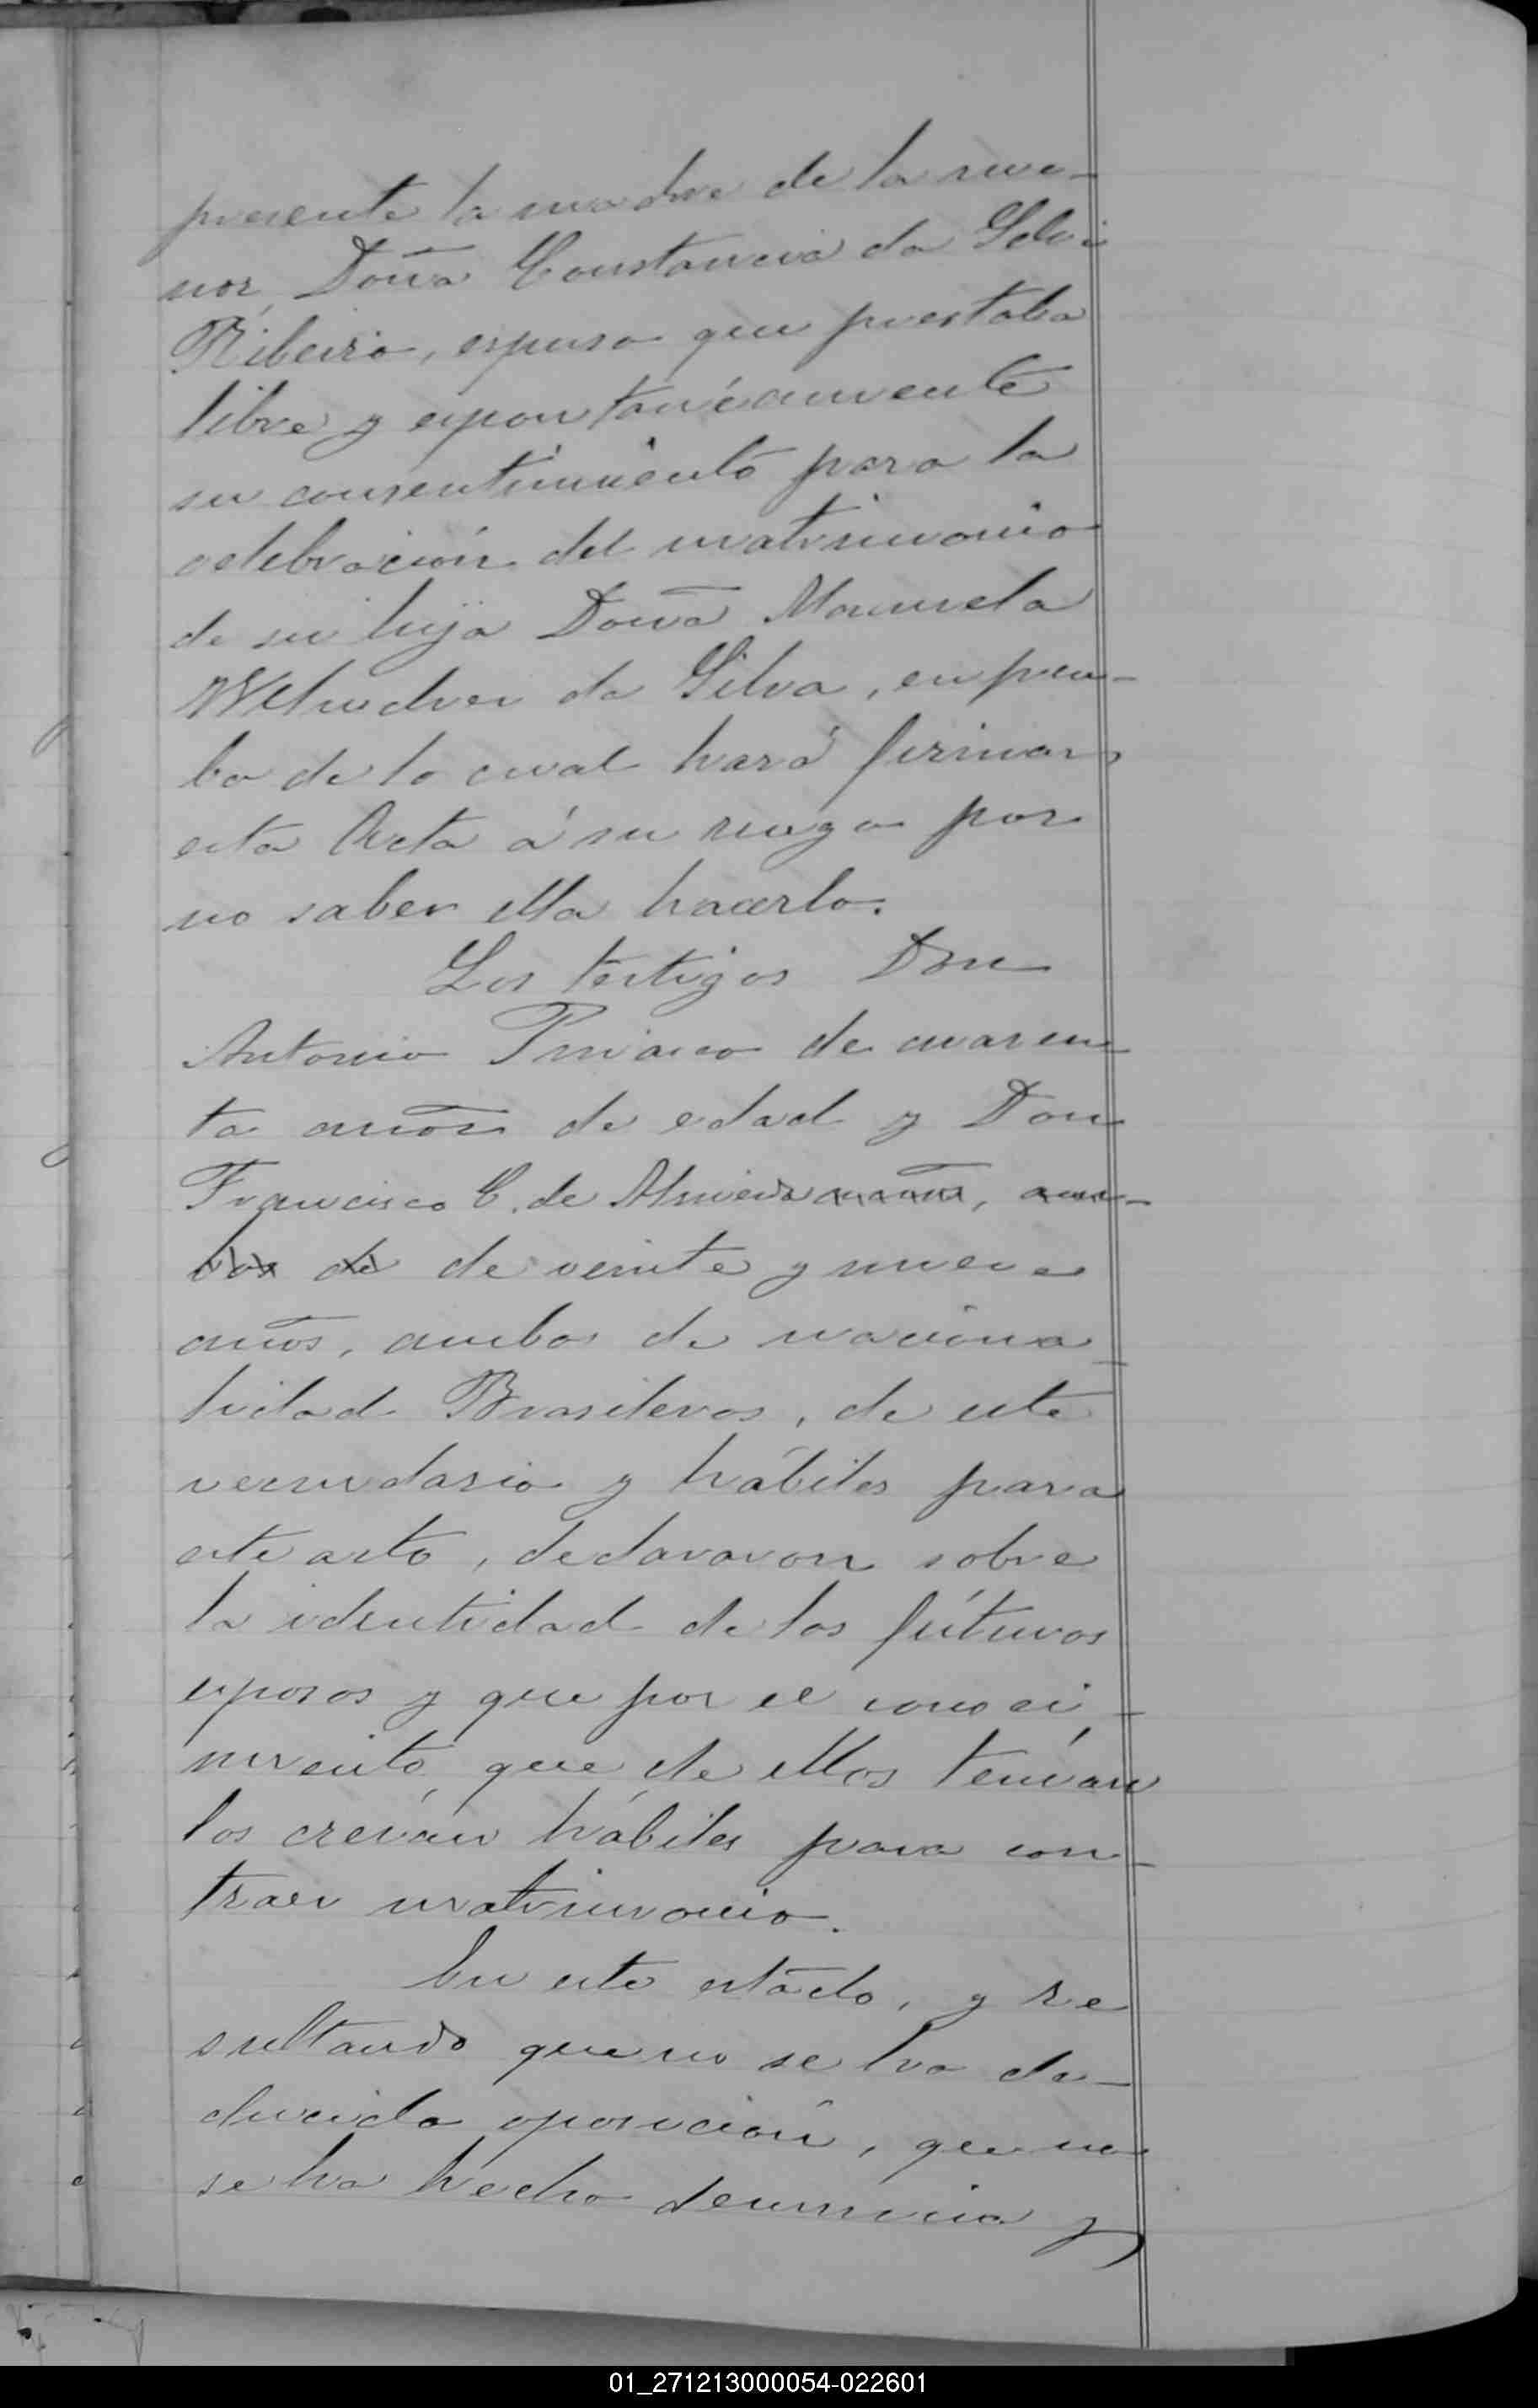 presente la madre de la me-
nor, Doña Constancia da Selvi
Ribeiro, espuso que prestaba
libre y espontáneamente
su consentimiento para la
celebración del matrimonio
de su hija Doña Manuela
da Silva, en prue-
ba de lo cual hará firmar
esta Acta á su ruego por
no saber ella hacerlo.
Los testigos Don
Antonio de cuaren
ta años de edad y Don
Francisco C. de Almeida
de veinte y nueve
años, ambos de naciona
lidad Brasileros, de este
vecindario y hábiles para
este acto, declararon sobre
la identidad de los fúturos
esposos y que por el conoci-
miento que de ellos tenían
los creían hábiles para con-
traer matrimonio.
En este estado, y re
sultando que no se ha de-
ducido oposición, que no
se ha hecho denuncia y
01_271213000054-022601